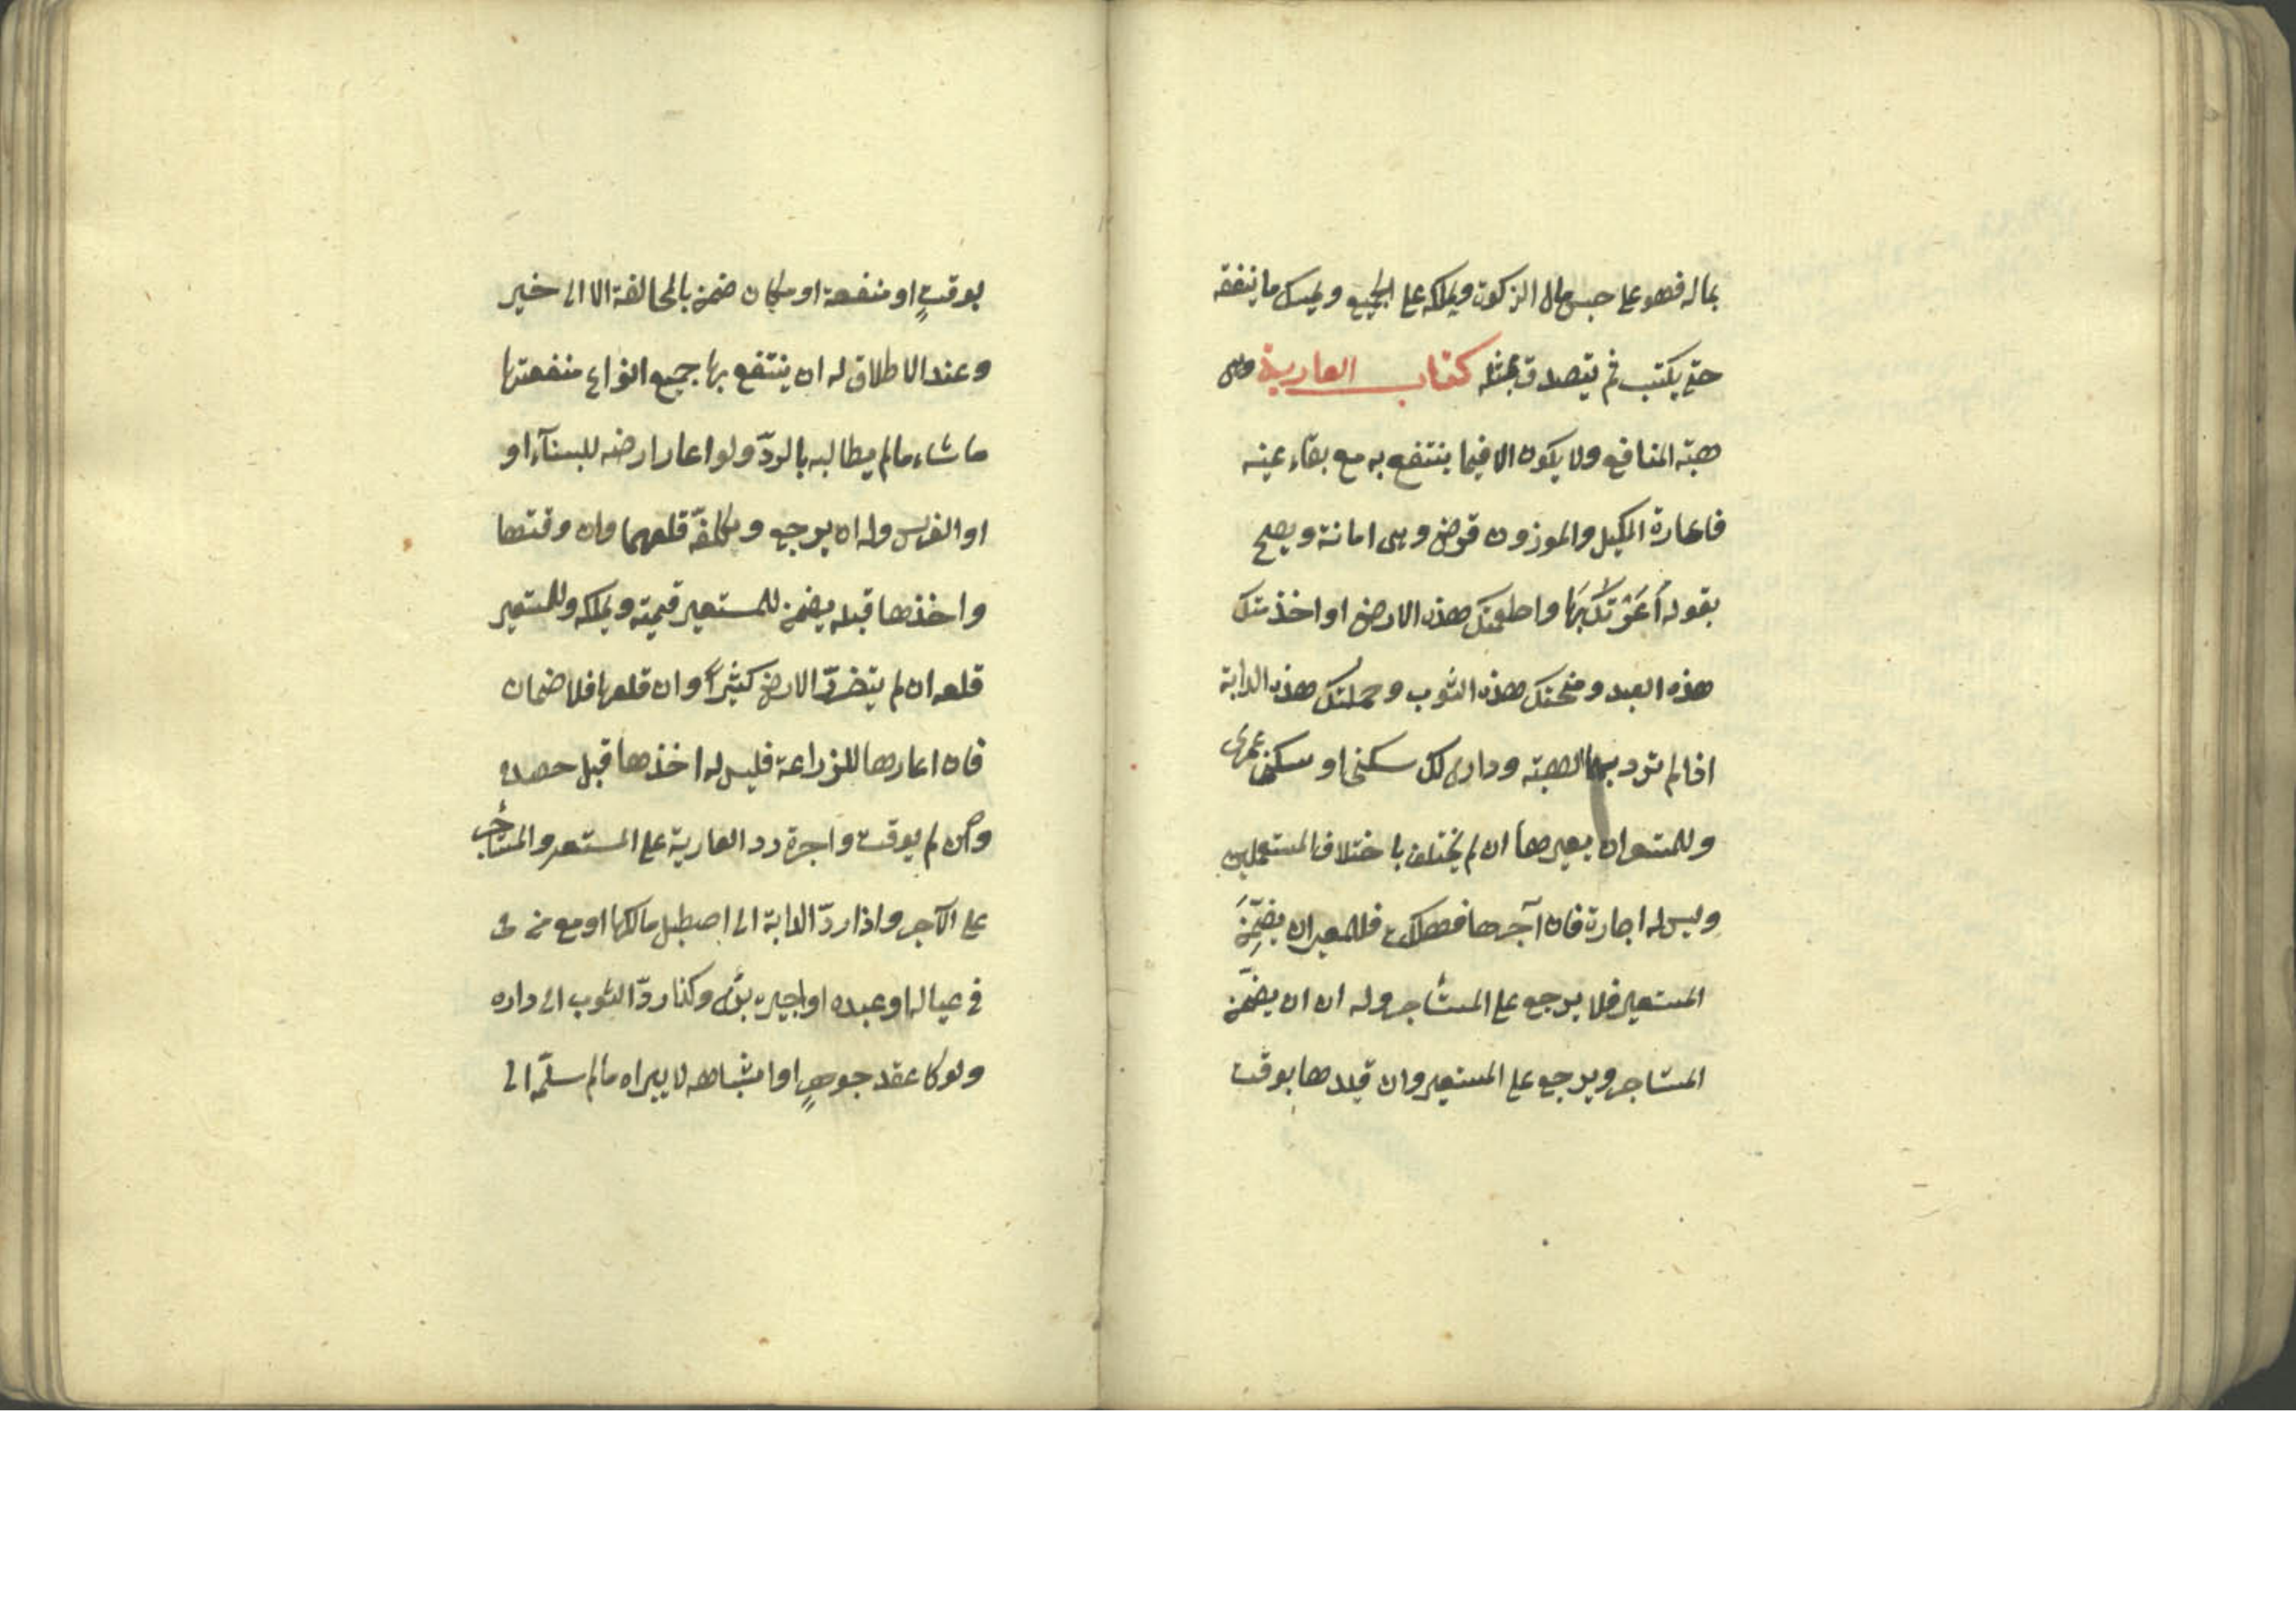 بماله فهو على جنس مال الزكوت ويملكه على الجميع ويمسك ما ينفقه
حتى يكتسب ثم يتصدق بمثله كتاب العارية وهى
هبة المنافع ولا يكون الا فيما ينتفع به مع بقاء عينه
فاعارة المكيل والموزون قرض وهى امانة ويصح
بقوله أعَرْتُكَهَا واطعمتك هذه الارض او اخذمتك
هذه العبد ومنحتك هذه الثوب وحملتك هذه الدابة
اذا لم ترد بها الهبة ودارى لك سكنى او سكنى عمرى
وللمستعير ان يعيرها ان لم يختلف باختلاف المستعملين
وليس له اجارة فان آجرها فهلكت فللمعير ان يضمّن
المستعير فلا يرجع على المستأجر وله ان ان يضمّن
المستاجر ويرجع على المستعير وان قيدها بوقت
بوقتٍ او منفعة او مكان ضمن بالمخالفة الا الى خير
وعند الاطلاق له ان ينتفع بها جميع انواع منفعتها
ما شاء ما لم يطالبه بالردّ ولو اعار ارضه للبنآء او
او الغرس وله ان يرجع ويكلفّه قلعهما وان وقتها
واخذها قبله يضمن للمستعير قيمته ويملكه وللمستعير
قلعه ان لم يتضرّر الارض كثيراً وان قلعها فلا ضمان
فان اعارها للزراعة فليس له اخذها قبل حصده
وان لم يوقت واجرة رد العارية على المستعير والمستأجر
على الآجر واذا ردّ الدابة الى اصطبل مالكها او مع من
فى عياله او عبده او اجيره برئ وكذا ردّ الثوب الى داره
ولو كا عقد جوهرٍ او اشباهه لا يبراه ما لم سلمّه الى